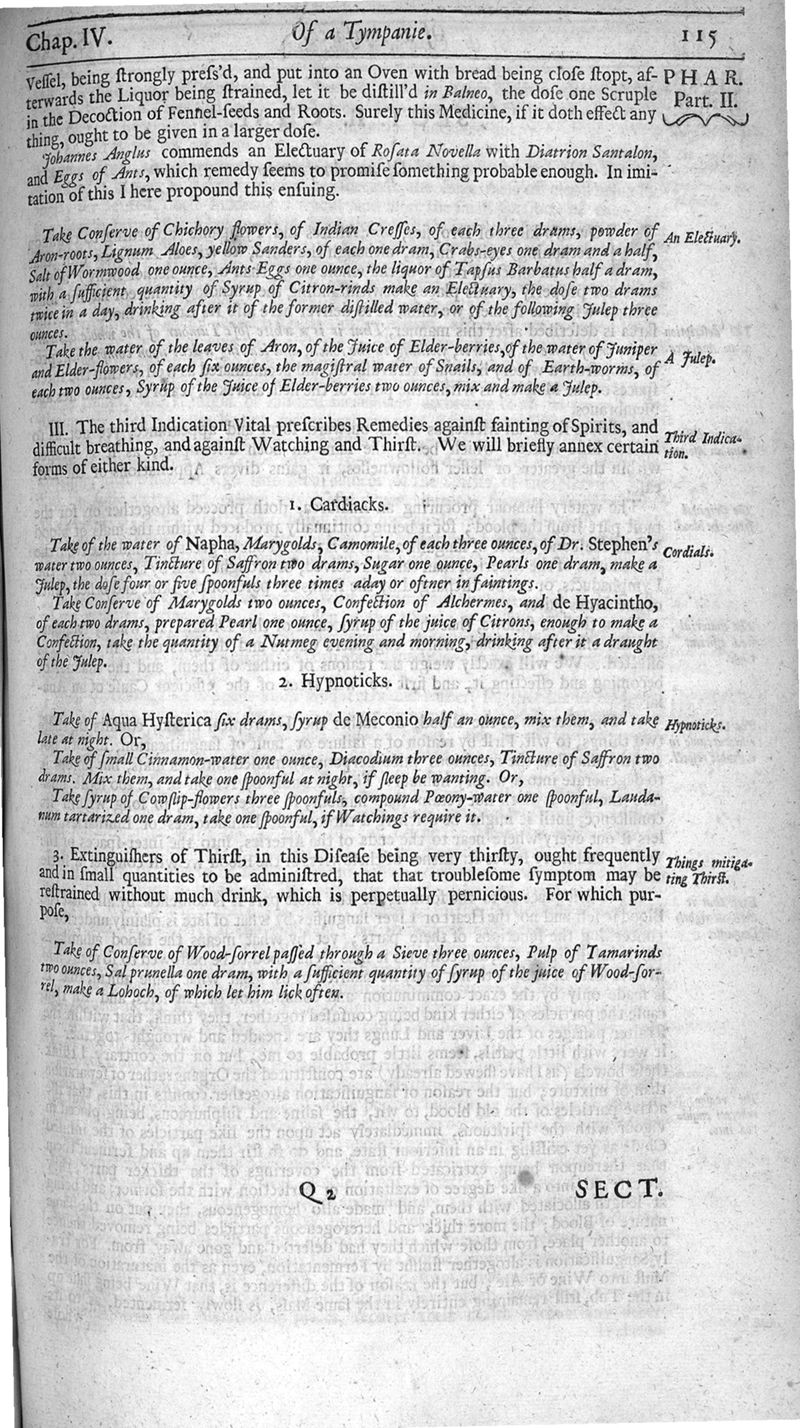 Chap. IV. Of a Tympanie. 115
Veſſel, being ſtrongly preſs'd, and put into an Oven with bread being cloſe ſtopt, af-
terwards the Liquor being ſtrained, let it be diſtill'd in Balneo, the doſe one Scruple
in the Decoction of Fennel-ſeeds and Roots. Surely this Medicine, if it doth effect any
thing, ought to be given in a larger doſe.
PHAR.
Part. II.
Johannes Anglus commends an Electuary of Roſata Novella with Diatrion Santalon,
and Eggs of Ants, which remedy ſeems to promiſe ſomething probable enough. In imi-
tation of this I here propound this enſuing.
Take Conſerve of Chichory flowers, of Indian Creſſes, of each three drams, powder of
Aron-roots, Lignum Aloes, yellow Sanders, of each one dram, Crabs-eyes one dram and a half,
Salt of Wormwood one ounce, Ants Eggs one ounce, the liquor of Tapſus Barbatus half a dram,
with a ſufficient quantity of Syrup of Citron-rinds make an Electuary, the doſe two drams
twice in a day, drinking after it of the former diſtilled water, or of the following Julep three
ounces.
An Electuary.
Take the water of the leaves of Aron, of the Juice of Elder-berries, of the water of Juniper
and Elder-flowers, of each ſix ounces, the magiſtral water of Snails, and of Earth-worms, of
each two ounces, Syrup of the Juice of Elder-berries two ounces, mix and make a Julep.
A Julep.
III. The third Indication Vital preſcribes Remedies againſt fainting of Spirits, and
difficult breathing, and againſt Watching and Thirſt. We will briefly annex certain
forms of either kind.
Third Indica-
tion.
1. Cardiacks.
Take of the water of Napha, Marygolds, Camomile, of each three ounces, of Dr. Stephen's
water two ounces, Tincture of Saffron two drams, Sugar one ounce, Pearls one dram, make a
Julep, the doſe four or five ſpoonfuls three times a day or oftner in faintings.
Cordials.
Take Conſerve of Marygolds two ounces, Confection of Alchermes, and de Hyacintho,
of each two drams, prepared Pearl one ounce, ſyrup of the juice of Citrons, enough to make a
Confection, take the quantity of a Nutmeg evening and morning, drinking after it a draught
of the Julep.
2. Hypnoticks.
Take of Aqua Hyſterica ſix drams, ſyrup de Meconio half an ounce, mix them, and take
late at night. Or,
Hypnoticks.
Take of ſmall Cinnamon-water one ounce, Diacodium three ounces, Tincture of Saffron two
drams. Mix them, and take one ſpoonful at night, if ſleep be wanting. Or,
Take ſyrup of Cowſlip-flowers three ſpoonfuls, compound Pœony-water one ſpoonful, Lauda-
num tartarized one dram, take one ſpoonful, if Watchings require it.
3. Extinguiſhers of Thirſt, in this Diſeaſe being very thirſty, ought frequently
and in ſmall quantities to be adminiſtred, that that troubleſome ſymptom may be
reſtrained without much drink, which is perpetually pernicious. For which pur-
poſe,
Things mitiga-
ting Thirſt.
Take of Conſerve of Wood-ſorrel paſſed through a Sieve three ounces, Pulp of Tamarinds
two ounces, Sal prunella one dram, with a ſufficient quantity of ſyrup of the juice of Wood-ſor-
rel, make a Lohoch, of which let him lick often.
Q2 SECT.